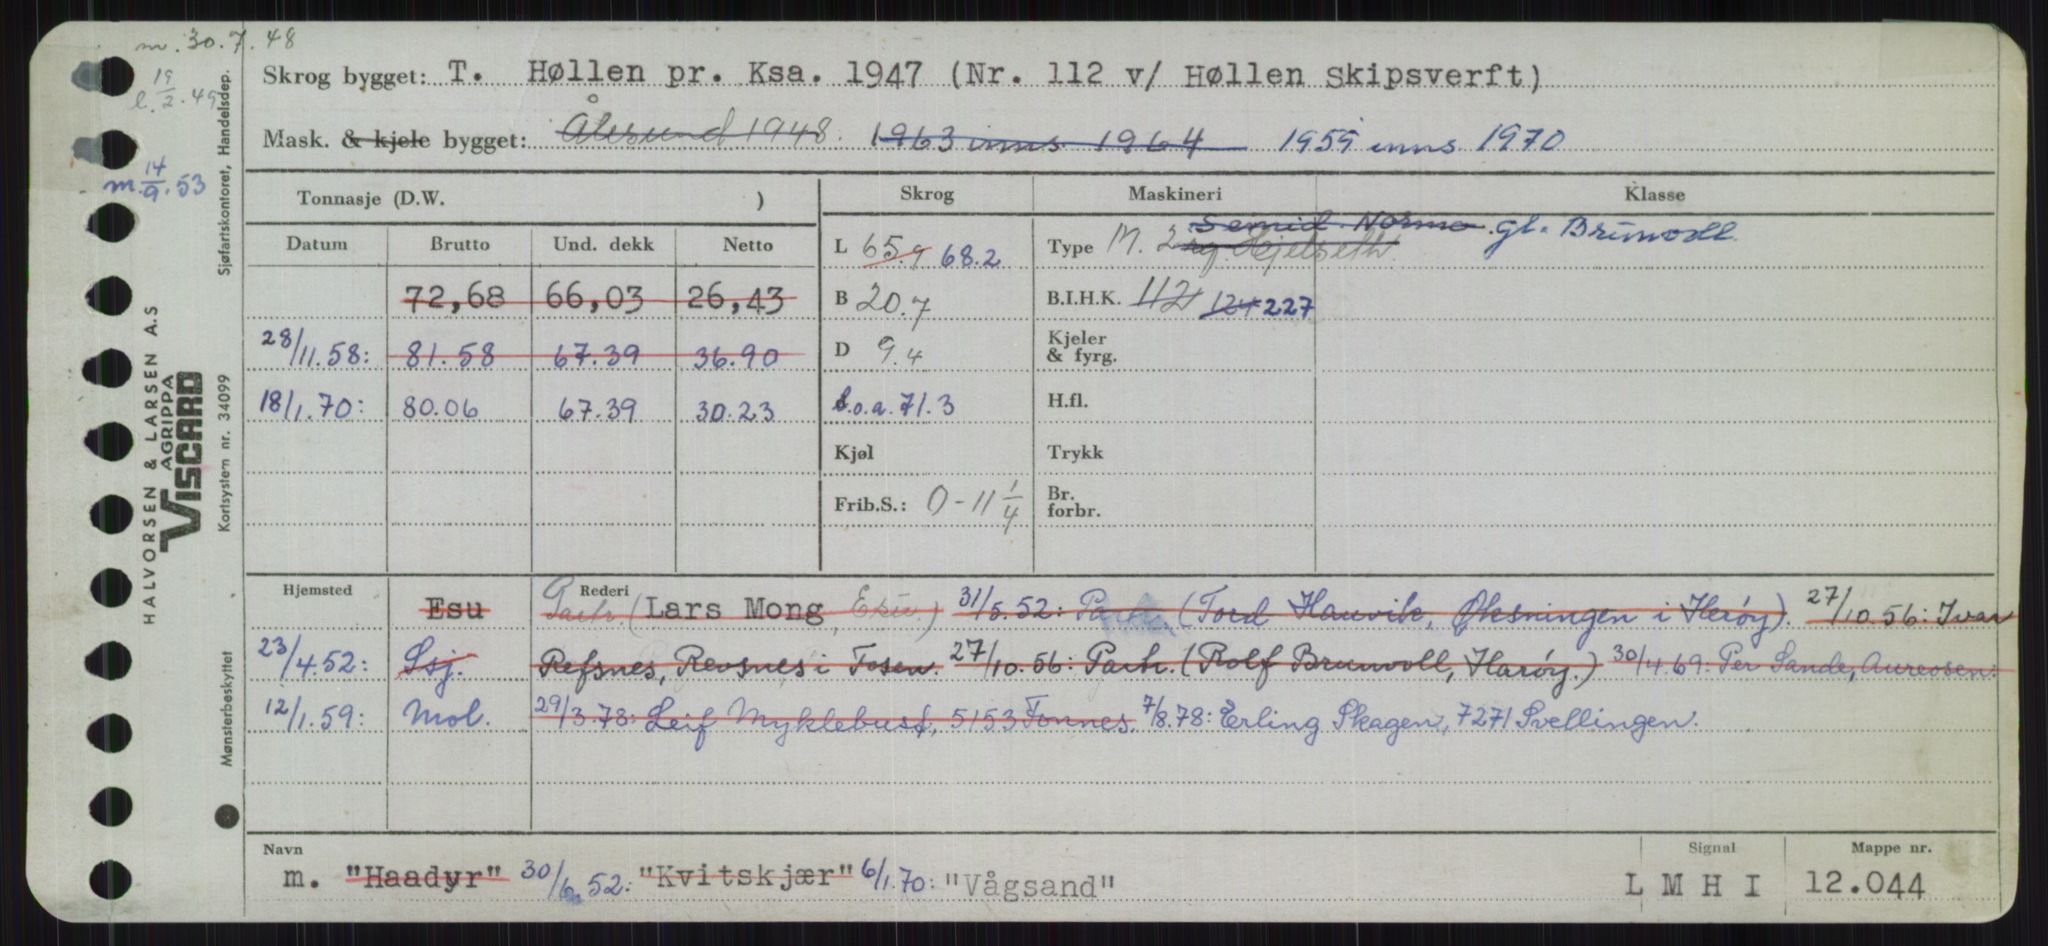 m. 30.7.48
l. 19/2.49
m. 14/9.53
Sjøfartskontoret, Handelsdep.
Kortsystem nr. 34099
Mønsterbeskyttet
HALVORSEN & LARSEN A.S
AGRIPPA
VISCARD
Skrog bygget: T. Høllen pr. Ksa. 1947 (Nr. 112 v/ Høllen Skipsverft)
Mask. & kjele bygget: Ålesund 1948. 1963 inns 1964 1959 inns 1970
Tonnasje (D.W. ) Skrog Maskineri Klasse
Datum Brutto Und. dekk Netto
L 65.9 68.2 Type M. 2 Semid. Normo gl. Brunvoll
Hjelseth
72,68 66,03 26,43 B 20.7 B.I.H.K. 112 124 227
28/11.58: 81.58 67.39 36.90 D 9.4 Kjeler & fyrg.
18/1.70: 80.06 67.39 30.23 l.o.a. 71.3 H.fl.
Kjøl Trykk
Frib.S.: 0-11 1/4 Br. forbr.
Hjemsted Rederi
Esu Partr. (Lars Mong, ) 31/5.52: Partr. (Tord Hauvik, Øksningen i Herøy). 27/10.56: Ivar
23/4.52: Ssj. Refsnes, Revsnes i Fosen. 27/10.56: Partr. (Rolf Brunvoll, Harøy.) 30/4.69: Per Sande, Aureosen.
12/1.59: Mol. 29/3.78: Leif Myklebust, 5153 Fonnes. 7/8.78: Erling Skagen, 7271 Svellingen.
Navn Signal Mappe nr.
m. "Haadyr" 30/6.52: "Kvitskjær" 6/1.70: "Vågsand" L M H I 12.044